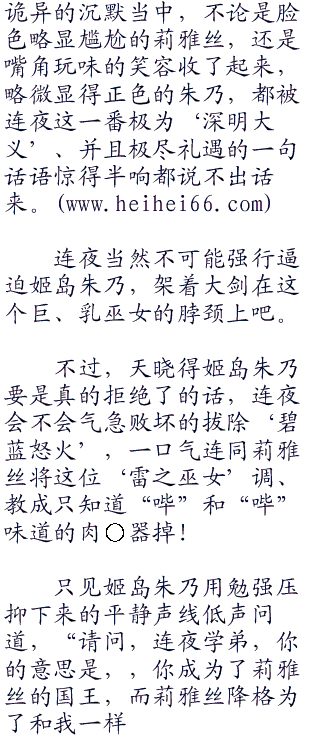 诡异的沉默当中，不论是脸
色略显尴尬的莉雅丝，还是
嘴角玩味的笑容收了起来，
略微显得正色的朱乃，都被
连夜这一番极为‘深明大
义’、并且极尽礼遇的一句
话语惊得半响都说不出话
来。(www.heihei66.com)
连夜当然不可能强行逼
迫姬岛朱乃，架着大剑在这
个巨、乳巫女的脖颈上吧。
不过，天晓得姬岛朱乃
要是真的拒绝了的话，连夜
会不会气急败坏的拔除‘碧
蓝怒火’，一口气连同莉雅
丝将这位‘雷之巫女’调、
教成只知道“哔”和“哔”
味道的肉○器掉！
只见姬岛朱乃用勉强压
抑下来的平静声线低声问
道，“请问，连夜学弟，你
的意思是，，你成为了莉雅
丝的国王，而莉雅丝降格为
了和我一样